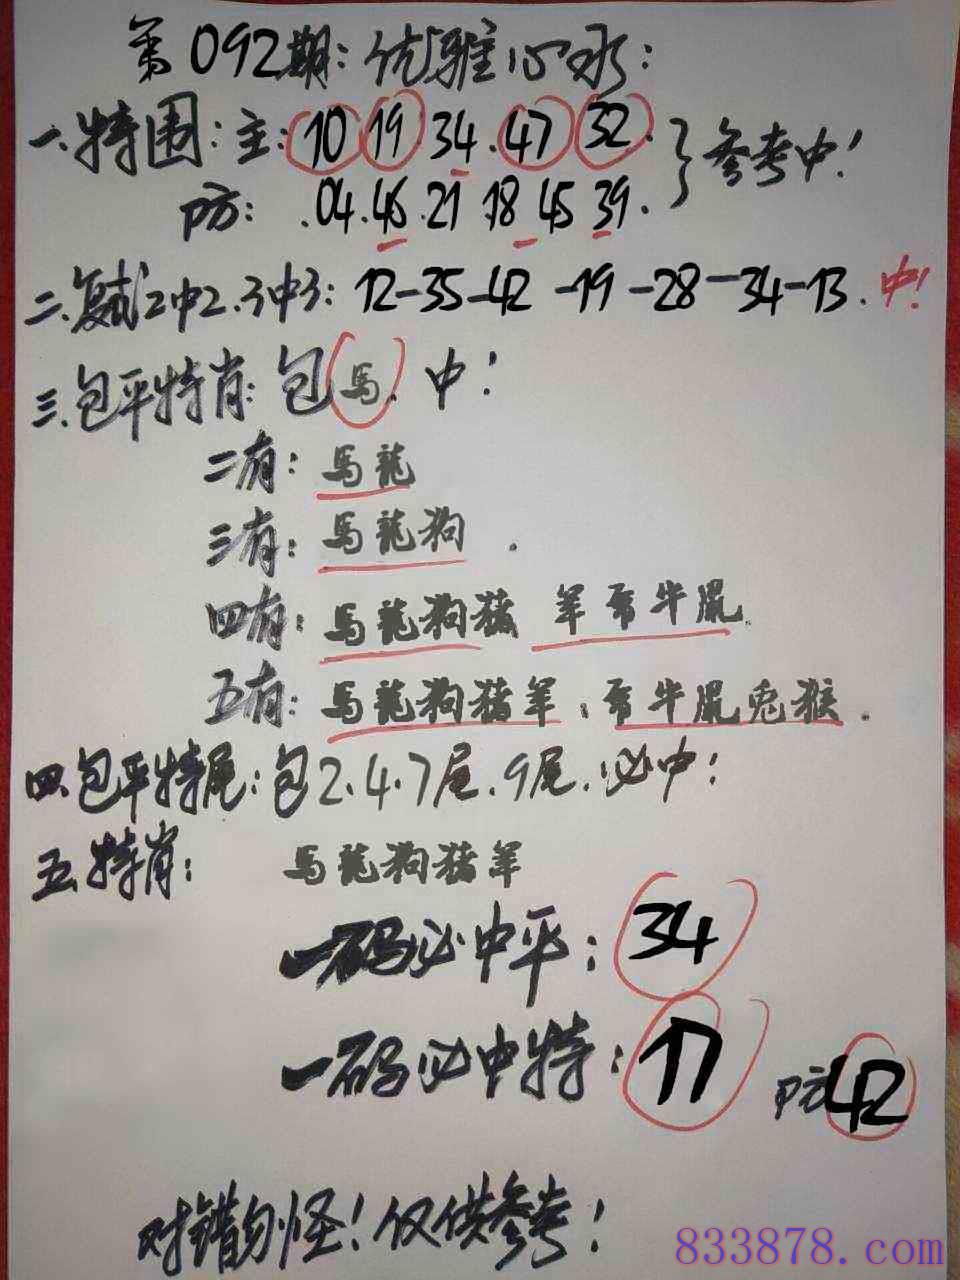 第092期:优雅心水:
一.特围:主:10 19 34.47 32.
防:.04.46.21 18 45 39.
参考中!
二.复式2中2.3中3:12-35-42-19-28-34-13.中!
三.包平特肖:包馬.中!
二有:馬龍
三有:馬龍狗.
四有:馬龍狗猪 羊虎牛鼠.
五有:馬龍狗猪羊.虎牛鼠兔猴.
四.包平特尾:包2.4.7尾.9尾.必中!
五.特肖:馬龍狗猪羊
一码必中平:34
一码必中特:17 防42
对错勿怪!仅供参考!
833878.com